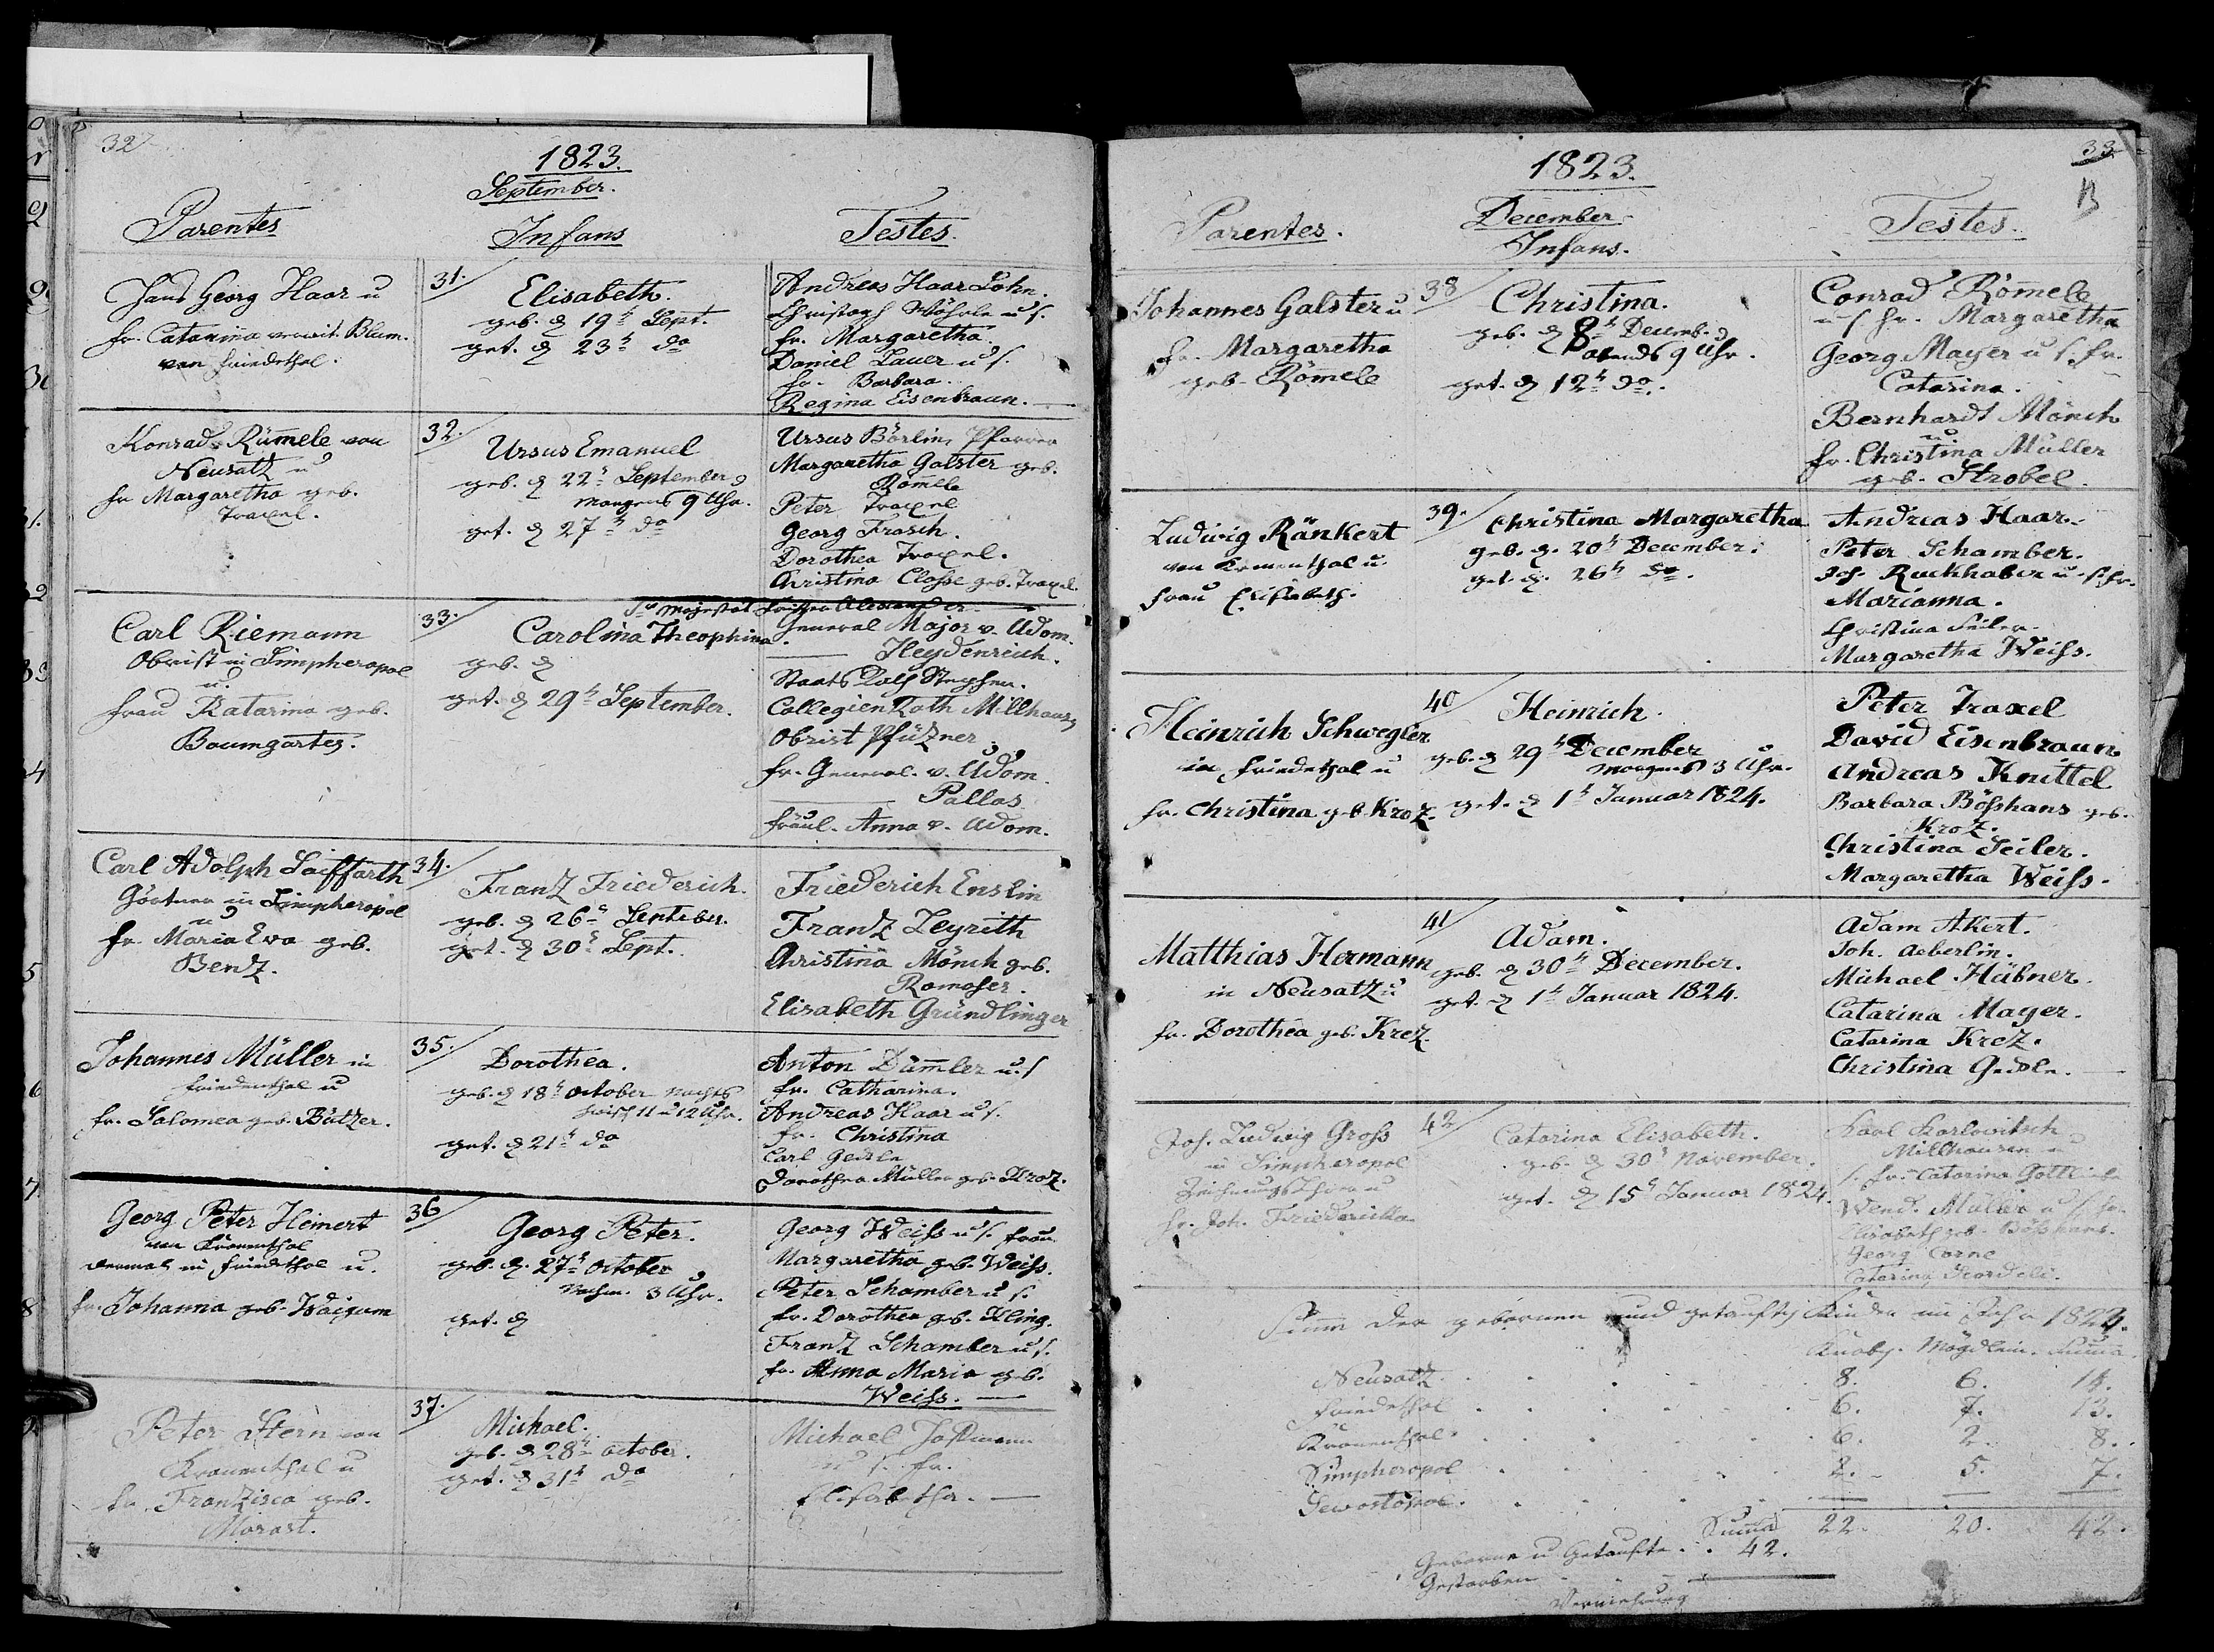 32
1823.
September.
Parentes
Infans
Testes.
Hans Georg Haar u
fr. Catarina verwit. Blum.
von Friedethal.
31.
Elisabeth.
geb. d 19t Sept.
get. d 23t do
Andreas Haar Sohn.
Christoph Wöhrle u s.
fr. Margaretha.
Daniel Lauer u s.
fr. Barbara.
Regina Eisenbraun.
Konrad Rümele von
Neusatz u
fr Margaretha geb.
Traxel.
32.
Ursus Emanuel
geb. d 22t September
morgens 9 Uhr.
get. d 27t do
Ursus Börlin, Pfarrer
Margaretha Galster geb.
Römele
Peter Traxel
Georg Frasch.
Dorothea Traxel.
Christina Closse geb. Traxel.
Carl Riemann
Obrist in Simpheropol
u.
frau Katarina geb.
Baumgarten.
33.
Carolina Theophina.
geb. d
get. d 29t September.
Se Majestät Kaiser Alexander.
General Major v. Adom.
Heydenreich.
Staats Rath Stephen.
Collegien Rath Millhausen
Obrist Pfützner
fr. General. v. Adom.
Pallas
fräul. Anna v. Adom.
Carl Adolph Saiffarth
Gärtner in Simpheropol
u
fr. Maria Eva geb.
Benz.
34.
Franz Friederich.
geb. d 26t Septeber.
get. d 30t Sept.
Friederich Enslin
Franz Zeyrith
Christina Mönch geb.
Romoser.
Elisabeth Gründlinger
Johannes Müller in
Friedenthal u
fr. Salomea geb. Bätzer.
35.
Dorothea.
geb. d 18t October Nachts
zwisch 11 u 12 Uhr.
get. d 21t do
Anton Dümler u. s
fr. Catharina.
Andreas Haar u s.
fr. Christina
Carl Gedele
Dorothea Müller geb. Kroz.
Georg Peter Heinert
von Kronenthal
dermal in Friedethal u.
fr. Johanna geb. Waigum
36
Georg Peter.
geb. d. 27t October
Nachm. 3 Uhr.
get. d
Georg Weiss u s. frau
Margaretha geb. Weiss.
Peter Schamber u s.
fr. Dorothea geb. Kling.
Franz Schamber u s.
fr. Anna Maria geb.
Weiss.
Peter Stern von
Kronenthal u
fr. Franzisca geb.
Morast.
37.
Michael.
geb. d 28t October.
get. d 31t do
Michael Hoffmann
u s. fr.
Elisabetha.
33
1823.
December.
Parentes.
Infans.
Testes.
Johannes Galster u
fr. Margaretha
geb. Römele
38
Christina.
geb. d 8t Decemb.
abends 9 Uhr.
get. d 12t do.
Conrad Römele
u s fr. Margaretha
Georg Mayer u s. fr.
Catarina.
Bernhardt Mönch
u.
fr. Christina Müller
geb. Strobel.
Ludwig Ränkert
von Kronenthal u.
frau Elisabeth.
39.
Christina Margaretha
geb. d. 20t December.
get. d. 26t do.
Andreas Haar.
Peter Schamber.
Joh. Ruckhaber u. s. fr.
Marianna.
Christina Seiler.
Margaretha Weiss.
Heinrich Schwegler
in Friedethal u
fr. Christina geb. Kroz.
40
Heinrich.
geb. d 29t December
morgens 3 Uhr.
get. d 1t Januar 1824.
Peter Traxel
David Eisenbraun
Andreas Knittel
Barbara Bösshans geb.
Kroz.
Christina Seiler.
Margaretha Weiss.
Matthias Hermann
in Neusatz u
fr. Dorothea geb. Krez.
41
Adam.
geb. d 30t December.
get. d 1t Januar 1824.
Adam Akert.
Joh. Aeberlin.
Michael Hübner.
Catarina Mayer.
Catarina Krez.
Christina Gedele.
Joh. Ludwig Gross
in Simpheropol
u
fr. Joh. Friedericka
42
Catarina Elisabeth.
geb. d 30t November.
get. d 15t Januar 1824.
Karl Karlowitsch
Millhausen u
s. fr. Catarina Gottliebe
Wend. Müller u s fr.
Elisabeth geb. Bösshans.
Georg Corne
Catarina Scordeli.
Sum der gebornen und getauften Kinder im Jahr 1824.
Knaben. Mägdlein. Summa.
Neusatz 8. 6. 14.
Friedethal 6. 7. 13.
Kronenthal 6. 2. 8.
Simpheropol 2. 5. 7.
Sewastopol.
Summa 22. 20. 42.
Geborne u Getaufte 42.
Gestorben
Vermehrung